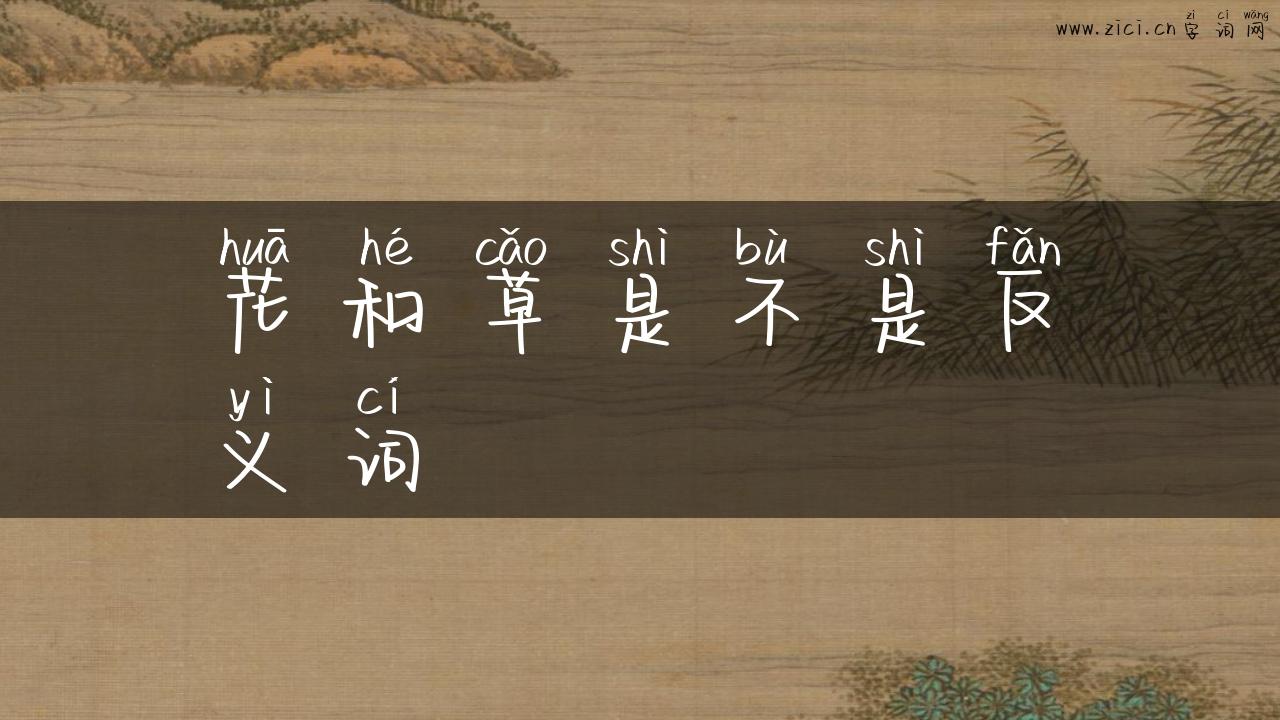 zì cí wǎng
www.zici.cn 字词网
huā hé cǎo shì bù shì fǎn
花和草是不是反
yì cí
义词